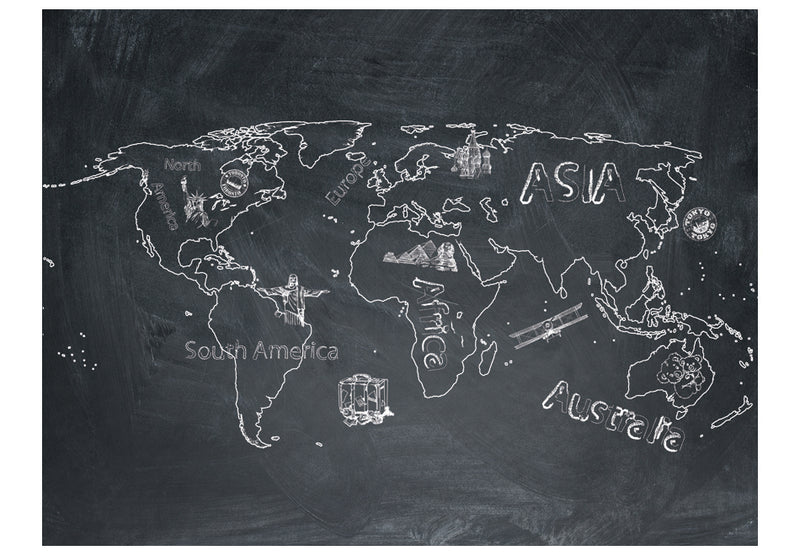 North
America
Europe
ASIA
TOKYO
TOKYO
Africa
South America
Australia